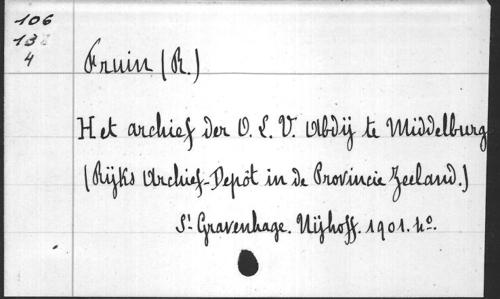 106
13
4
Fruin (R.)
Het archief der O. L. V. Abdij te Middelburg
(Rijks Archief-Depôt in de Provincie Zeeland.)
S'- Gravenhage. Nijhoff. 1901. 4o.